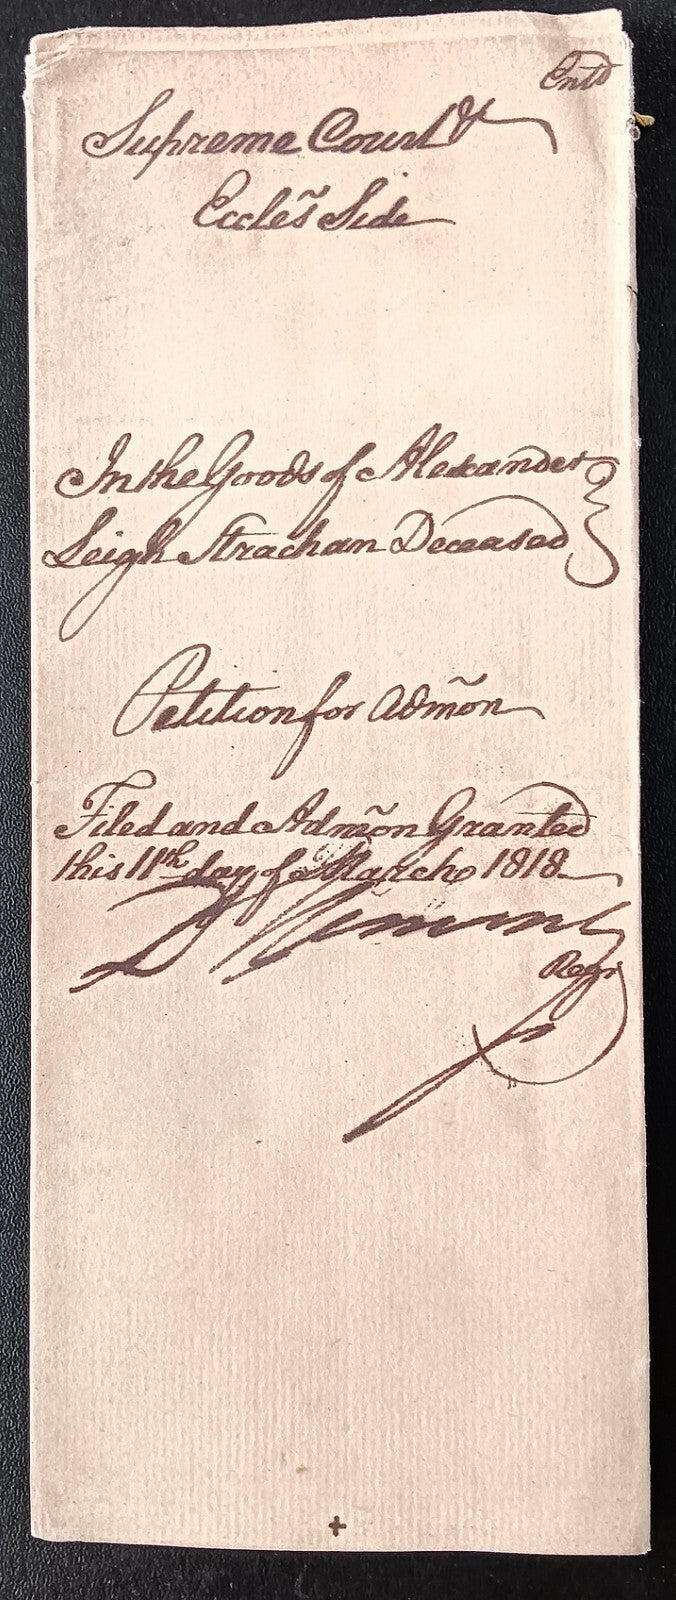 Entd
Supreme Court &
Eccles̃ Side
In the Goods of Alexander
Leigh Strachan Deceased
Petition for Admõn
Filed and Admõn Granted
this 11th day of March 1818
Regr